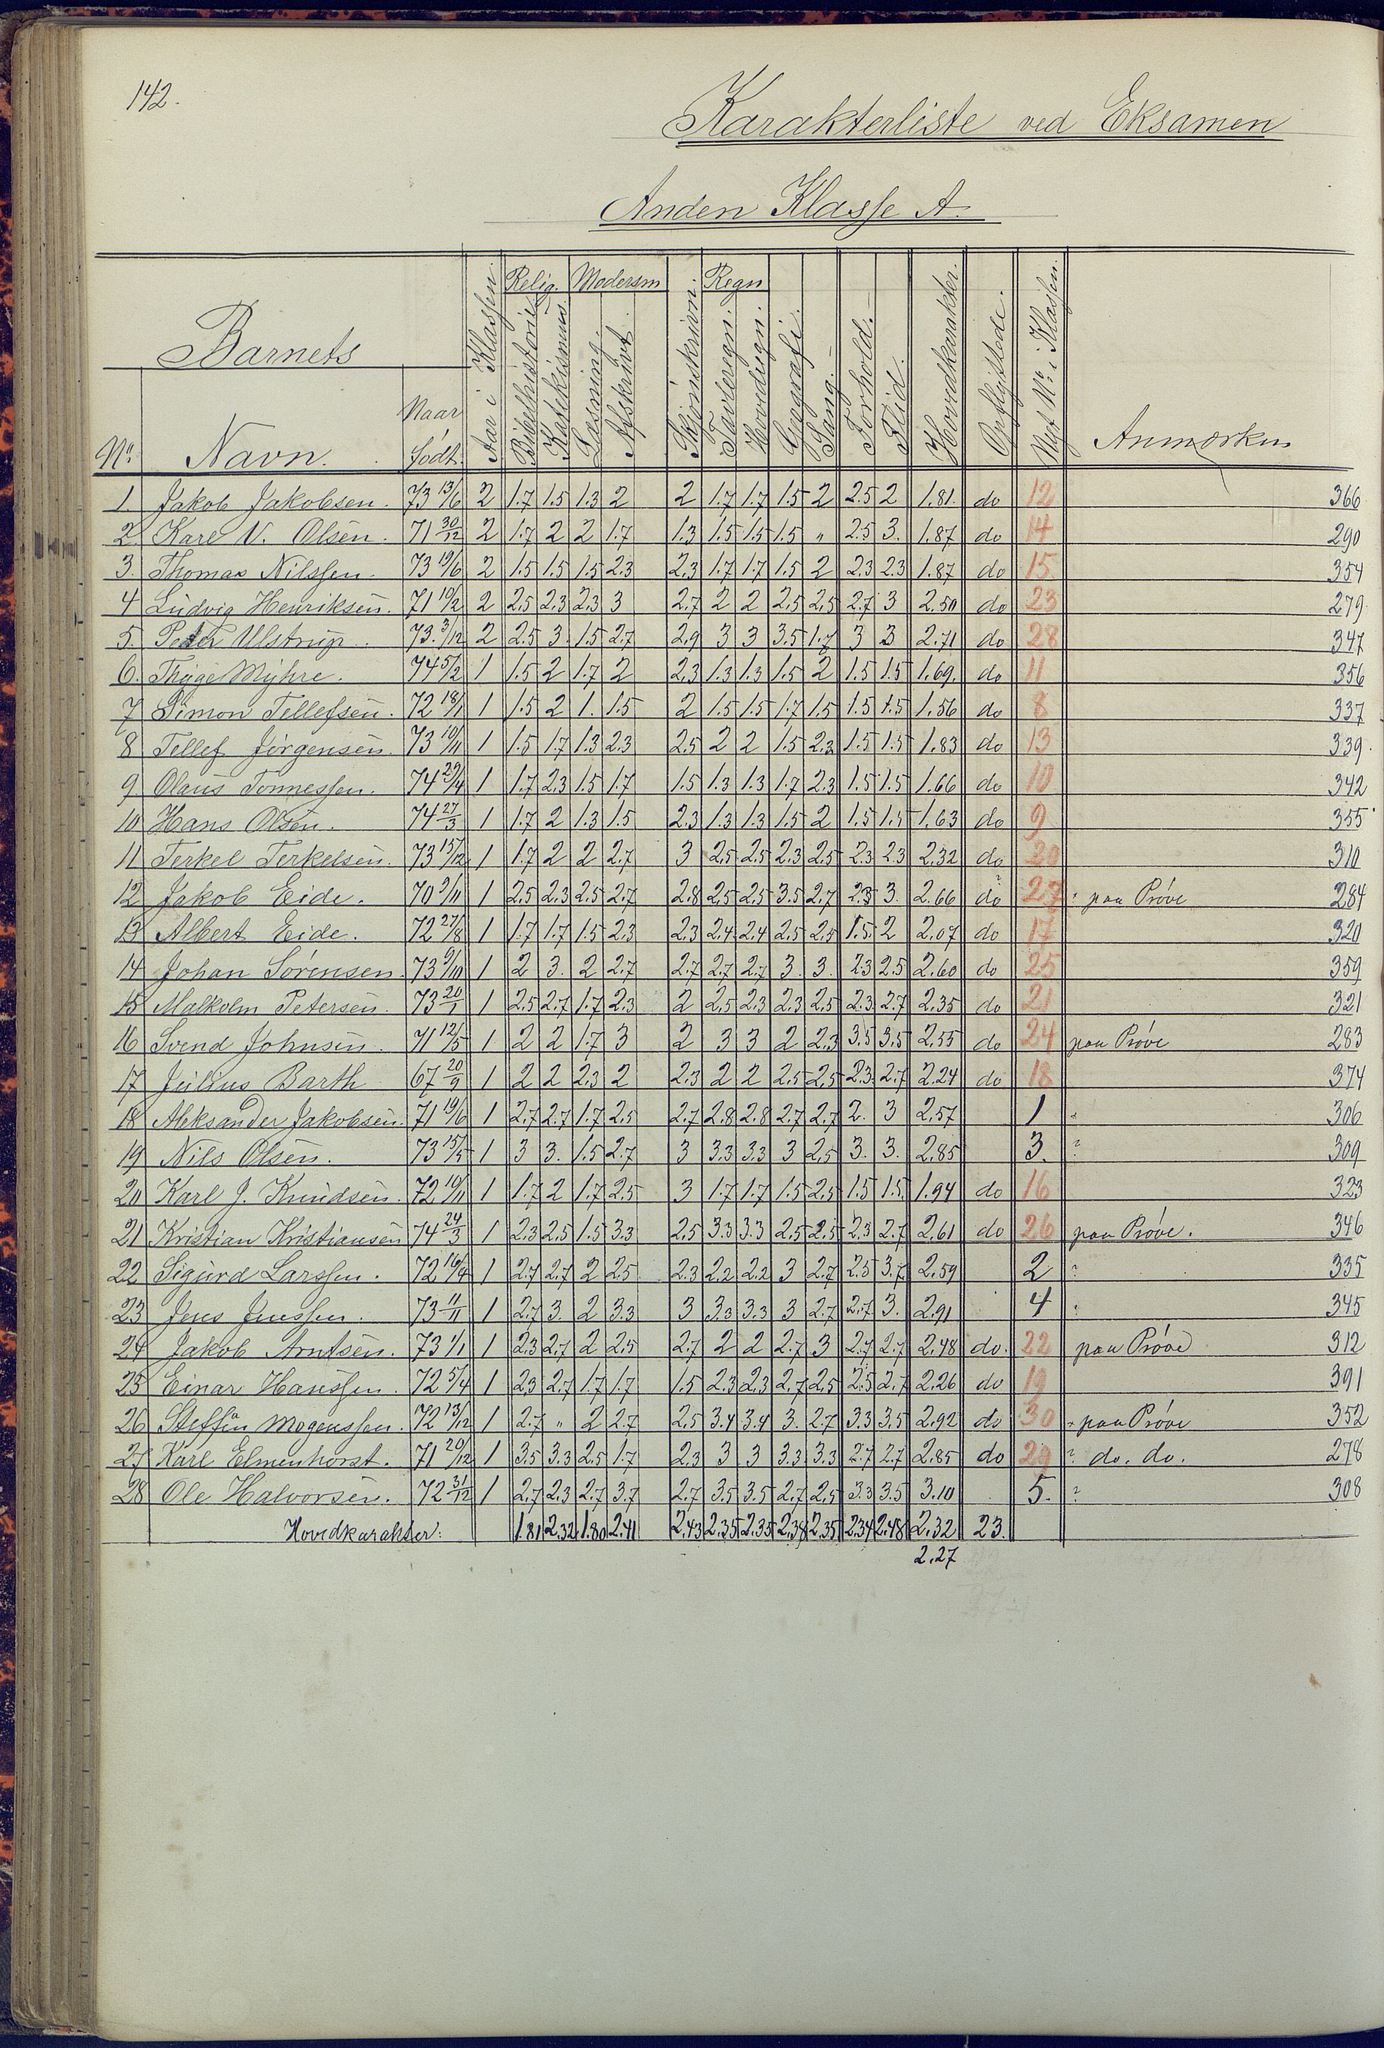 142.
Karakterliste ved Eksamen
Anden Klasse A.
Barnets
No. Navn. Naar født. Aar i Klassen. Relig. Bibelhistorie Katekismus. Modersm Læsning. Afskrivt. Skjönskrivn. Regn Tavleregn. Hovedregn. Geografi. Sang. Forhold. Flid. Hovedkarakter. Opflyttede. Nyt No. i Klassen. Anmærkn
1. Jakob Jakobsen. 73 13/6 2 1.7 1.5 1.3 2 2 1.7 1.7 1.5 2 2.5 2 1.81. do 12 366
2 Karl V. Olsen. 71 30/12 2 1.7 2 2 1.7 1.3 1.5 1.5 1.5 " 2.5 3. 1.87 do 14 290
3. Thomas Nilssen. 73 19/6 2 1.5 1.5 1.5 2.3 2.3 1.7 1.7 1.5 2 2.3 2.3 1.87 do 15. 354
4 Ludvig Henriksen. 71 10/2 2 2.5 2.3 2.3 3 2.7 2 2 2.5 2.5 2.7 3 2.50 do 23 279
5. Peder Ulstrup. 73. 3/12 2 2.5 3. 1.5 2.7 2.9 3 3 3.5 1.7 3 3 2.71 do 28 347
6. Thyge Myhre. 74 5/2 1 1.5 2 1.7 2 2.3 1.3 1.3 1.5 2 1.5 1.5 1.69. do 11 356
7 Simon Tellefsen. 72 18/1 1 1.5 2 1. 1.5 2 1.5 1.5 1.7 1.5 1.5 1.5 1.56 do 8 337
8 Tellef Jørgensen. 73 10/11 1 1.5 1.7 1.3 2.3 2.5 2 2 1.5 2.3 1.5 1.5 1.83 do 13 339.
9 Olaus Tønnessen. 74 29/4 1 1.7 2.3 1.5 1.7 1.5 1.3 1.3 1.7 2.3 1.5 1.5 1.66 do 10 342
10 Hans Olsen. 74 27/3 1 1.7 2 1.3 1.5 2.3 1.3 1.3 1.5 2 1.5 1.5 1.63 do 9 355
11 Terkel Terkelsen. 73 15/12 1 1.7 2 2 2.7 3 2.5 2.5 2.3 2.5 2.3 2.3 2.32 do 20 310
12 Jakob Eide. 70 9/11 1 2.5 2.3 2.5 2.7 2.8 2.5 2.5 3.5 2.7 2.3 3. 2.66 do 27 " paa Prøve 284
13 Albert Eide. 72 27/8 1 1.7 1.7 1.5 2.3 2.3 2.4 2.4 2.5 2.5 1.5. 2 2.07 do 17 320
14 Johan Sørensen. 73 9/10 1 2 3. 2 2.7 2.7 2.7 2.7 3. 3. 2.3 2.5 2.60 do 25 359
15 Malkolm Petersen. 73 20/1 1 2.5 2.7 1.7 2.3 2 2.5 2.3 2.3 2.5 2.3 2.7 2.35 do 21 321
16 Svend Johnsen 71 12/5 1 2 2 1.7 3 2 3 3 2 2.3 3.5 3.5 2.55 do 24 paa Prøve 283
17 Julius Barth 67 20/9 1 2 2 2.3 2 2.3 2 2 2.5 2.5 2.3. 2.7 2.24 do 18 374
18 Aleksander Jakobsen. 71 19/6 1 2.7 2.7 1.7 2.5 2.7 2.8 2.8 2.7 2.7 2. 3 2.57 1 " 306
19 Nils Olsen. 73 15/5 1 3 3. 1.5 2.7 3 3.3 3.3 3 2.5 3. 3. 2.85 3. ? 309
20 Karl J. Knudsen. 72 10/11 1 1.7 2 1.7 2.5 3 1.7 1.7 1.5 2.5 1.5 1.5. 1.94 do 16 323
21 Kristian Kristiansen 74 24/3 1 2.3 2.5 1.5 3.3 2.5 3.3 3.3 2.5 2.5 2.3 2.7 2.61 do 26 paa Prøve. 346
22 Sigurd Larssen. 72 16/4 1 2.7 2.7 2 2.5 2.3 2.2 2.2 3 2.7 2.5 3.7 2.59 2 ? 335
23 Jens Jenssen. 73 11/11 1 2.7 3. 2 3.3 3 3.3 3.3 3 2.7 2.7 3. 2.91 4 ? 345
24 Jakob Arntsen. 73 1/1 1 2.3 2.7 2 2.5 2.7 2 2 2.7 3 2.7 2.7 2.48 do. 22 paa Prøve 312
25 Einar Hanssen. 72 5/4 1 2.3 2.7 1.7 1.7 1.5 2.3 2.3 2.7 2.5 2.5 2.7 2.26 do 19 391
26 Steffin Mogenssen. 72 13/12 1 2.7 " 2 2.7 2.5 3.4 3.4 3. 2.7 3.3 3.5 2.92 do 30 " paa Prøve 352
27 Karl Elmenhorst. 71 20/12 1 3.5 3.3 2.5 1.7 2.3 3 3 3.3 3.3 2.7 2.7 2.85 do 29 ? do. do. 278
28 Ole Halvorsen. 72 31/12 1 2.7 2.3 2.7 3.7 2.7 3.5 3.5 2.7 2.5 3.3 3.5 3.10 5. ? 308
Hovedkarakter: 1.81 2.32 1.80 2.41 2.43 2.35 2.35 2.38 2.35 2.34 2.48 2.32 23.
2.27